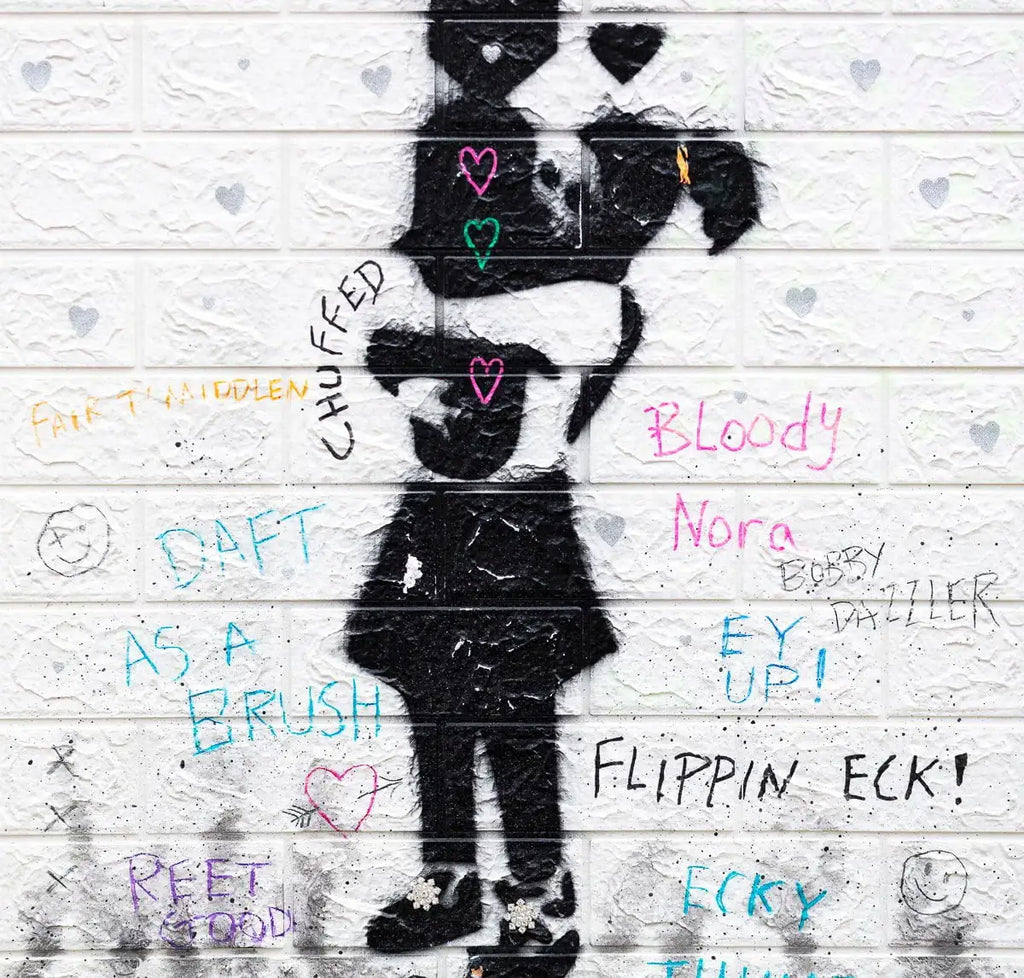 CHUFFED
FAIR T'MIDDLEN
BLOody
Nora
DAFT
BOBBY
DAZZLER
AS A
BRUSH
EY
UP!
FLIPPIN ECK!
REET
GOOD
ECKY
THUMP